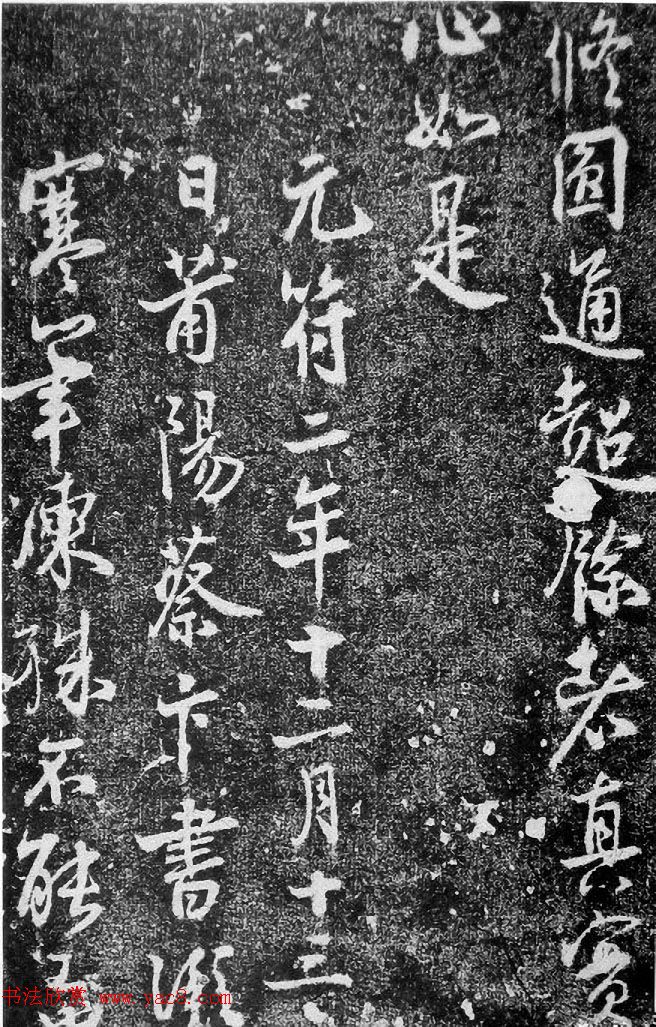 修圓通超餘者真實
心如是
元符二年十二月十三
日莆陽蔡卞書
寒筆凍殊不能
书法欣赏 www.yac8.com